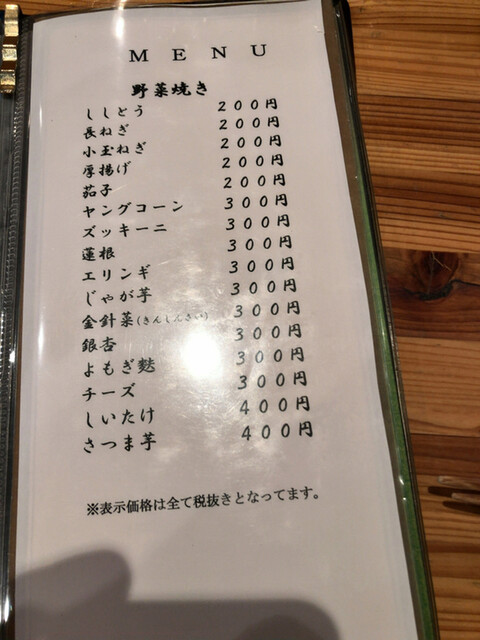 MENU
野菜焼き
ししとう 200円
長ねぎ 200円
小玉ねぎ 200円
厚揚げ 200円
茄子 200円
ヤングコーン 300円
ズッキーニ 300円
蓮根 300円
エリンギ 300円
じゃが芋 300円
金針菜(きんしんさい) 300円
銀杏 300円
よもぎ麩 300円
チーズ 300円
しいたけ 400円
さつま芋 400円
※表示価格は全て税抜きとなってます。